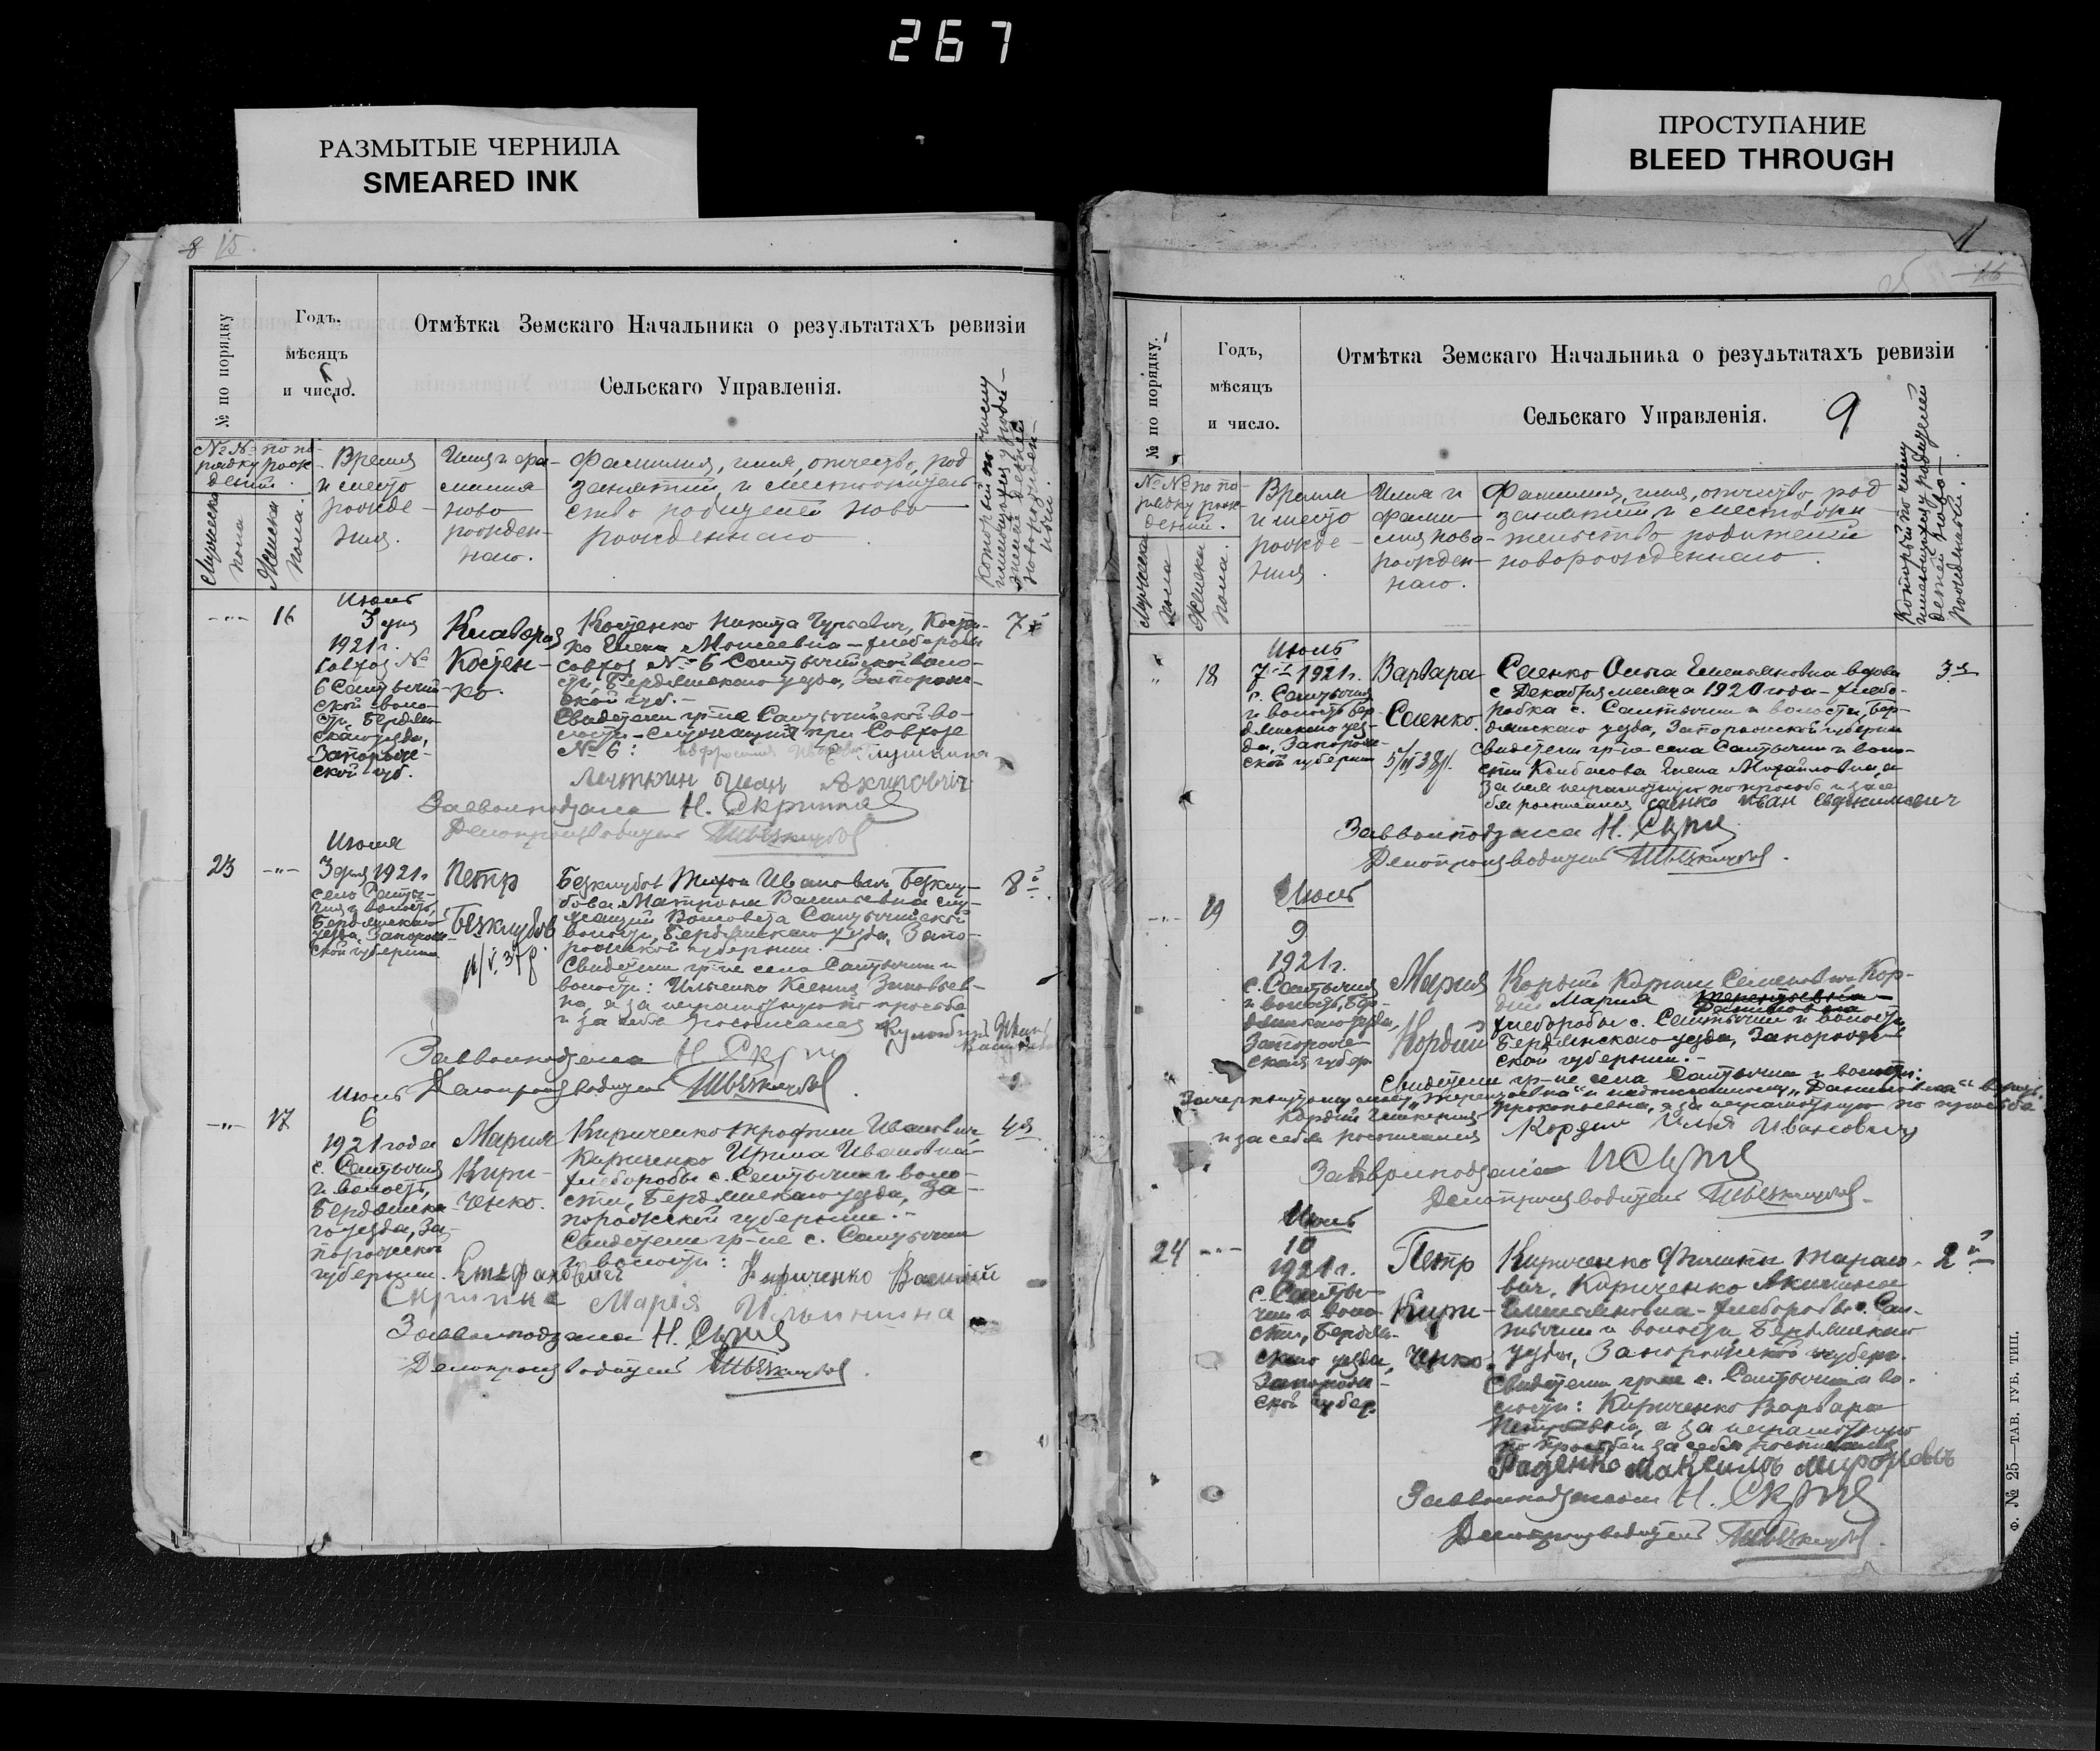 267
РАЗМЫТЫЕ ЧЕРНИЛА
SMEARED INK
ПРОСТУПАНИЕ
BLEED THROUGH
8 15
№ по порядку
Годъ,
мѣсяцъ
и число.
Отмѣтка Земскаго Начальника о результатахъ ревизіи
Сельскаго Управленія.
№ № по по-
рядку рож-
дений.
Мужска
пола
Женска
пола.
Время
и место
рожде-
ния.
Имя и фа-
милия
ново
рожден-
наго.
Фамилия, имя, отчество, род
занятий и местожитель-
ство родителей ново
рожденнаго
Который по счету
имеющихся у роди-
новорожден-
ный.
16
Июль
3 дня
1921 г.
Совхоз №
6 Салтычий-
ской воло-
сти, Бердян-
скаго уезда,
Запорож-
ской губ.
Клавдия
Костен-
ко.
Костенко Никита Гурьевич, Костен-
ко Елена Моисеевна - хлеборобы
Совхоз № 6 Салтычийской воло-
сти, Бердянскаго уезда, Запорож-
ской губ. -
Свидетели гр-не Салтычийской во-
лости - служащий при Совхозе
№ 6:
7й
Иван
Завволподзагса Н. Скрипка
Делопроизводитель
23
Июля
3 дня 1921 г.
село Салты-
чия и волость,
Бердянскаго
уезда, Запорож-
ской губернии
Петр
Безклубов
Безклубов Тихон Иванович, Безклу-
бова Матрона Васильевна слу-
жащий Волсовета Салтычийской
волости, Бердянскаго уезда, Запо-
рожской губернии.
Свидетели гр-не села Салтычии и
волости: Ильенко Ксения Зиновьев-
на, а за неграмотную по просьбе
и за себя росписался
8й
Завволподзагса Н. Скрип
Делопроизводитель
17
Июль
6
1921 года
с. Салтычия
и волость,
Бердянска-
го уезда, За-
порожской
губернии.
Мария
Кири-
ченко.
Кириченко Трофим Иванович,
Кириченко Ирина Ивановна -
хлеборобы с. Салтычии и воло-
сти, Бердянскаго уезда, За-
порожской губернии. -
Свидетели гр-не с. Салтычии
и волости: Кириченко Василий
Стефанович
4я
Скрипка Мария Ильинична
Завволподзагса Н. Скрип
Делопроизводитель
16
№ по порядку.
Годъ,
мѣсяцъ
и число.
Отмѣтка Земскаго Начальника о результатахъ ревизіи
Сельскаго Управленія.
9
№ № по по-
рядку рож-
дений.
Мужска
пола
Женска
пола.
Время
и место
рожде-
ния.
Имя и
фами-
лия ново-
рожден-
наго.
Фамилия, имя, отчество, род
занятий и местожи-
тельство родителей
новорожденнаго.
Который по счету
имеющихся у родителей
детей ново-
рожденный.
18
Июль
7го 1921 г.
с. Салтычия
и волость Бер-
дянскаго уез-
да, Запорож-
ской губернии
Варвара
Саенко.
Саенко Ольга Емельяновна вдова
с Декабря месяца 1920 года - хлебо-
робка с. Салтычии и волости, Бер-
дянскаго уезда, Запорожской губернии
Свидетели гр-не села Салтычии и воло-
сти Колбасова Елена Михайловна, а
за нея неграмотную по просьбе и за се-
бя росписался Саенко Иван Евдокимович
3я
Завволподзагса Н. Скрип
Делопроизводитель
19
Июль
9
1921 г.
с. Салтычия
и волость, Бер-
дянскаго уезда,
Запорож-
ская губер.
Мария
Кордий
Кордий Карпий Семенович, Кор-
дий Мария Терентьевна
Даниловна
хлеборобы с. Салтычии и волости
Бердянскаго уезда, Запорож-
ской губернии. -
Свидетели гр-не села Салтычии и волости:
Зачеркнутому слову „Терентьевна" и надписанному „Даниловна" верить.
Кордий Прокопьевна, а за неграмотную по просьбе
и за себя росписался Кордий Илья Иванович
Завволподзагса Н. Скрип
Делопроизводитель
24
Июль
10
1921 г.
с. Салты-
чия и воло-
сти, Бердян-
скаго уезда,
Запорож-
ской губер.
Петр
Кири-
ченко
Кириченко Филипп Тарасо-
вич, Кириченко Акилина
Емельяновна - хлеборобы с. Сал-
тычии и волости, Бердянскаго
уезда, Запорожской губерн.
Свидетели гр-не с. Салтычии и во-
лости: Кириченко Варвара
Петровна, а за неграмотную
по просьбе и за себя росписался
Максимъ
2й
Завволподзагсом Н. Скрип
Делопроизводитель
Ф. № 25—ТАВ. ГУБ. ТИП.